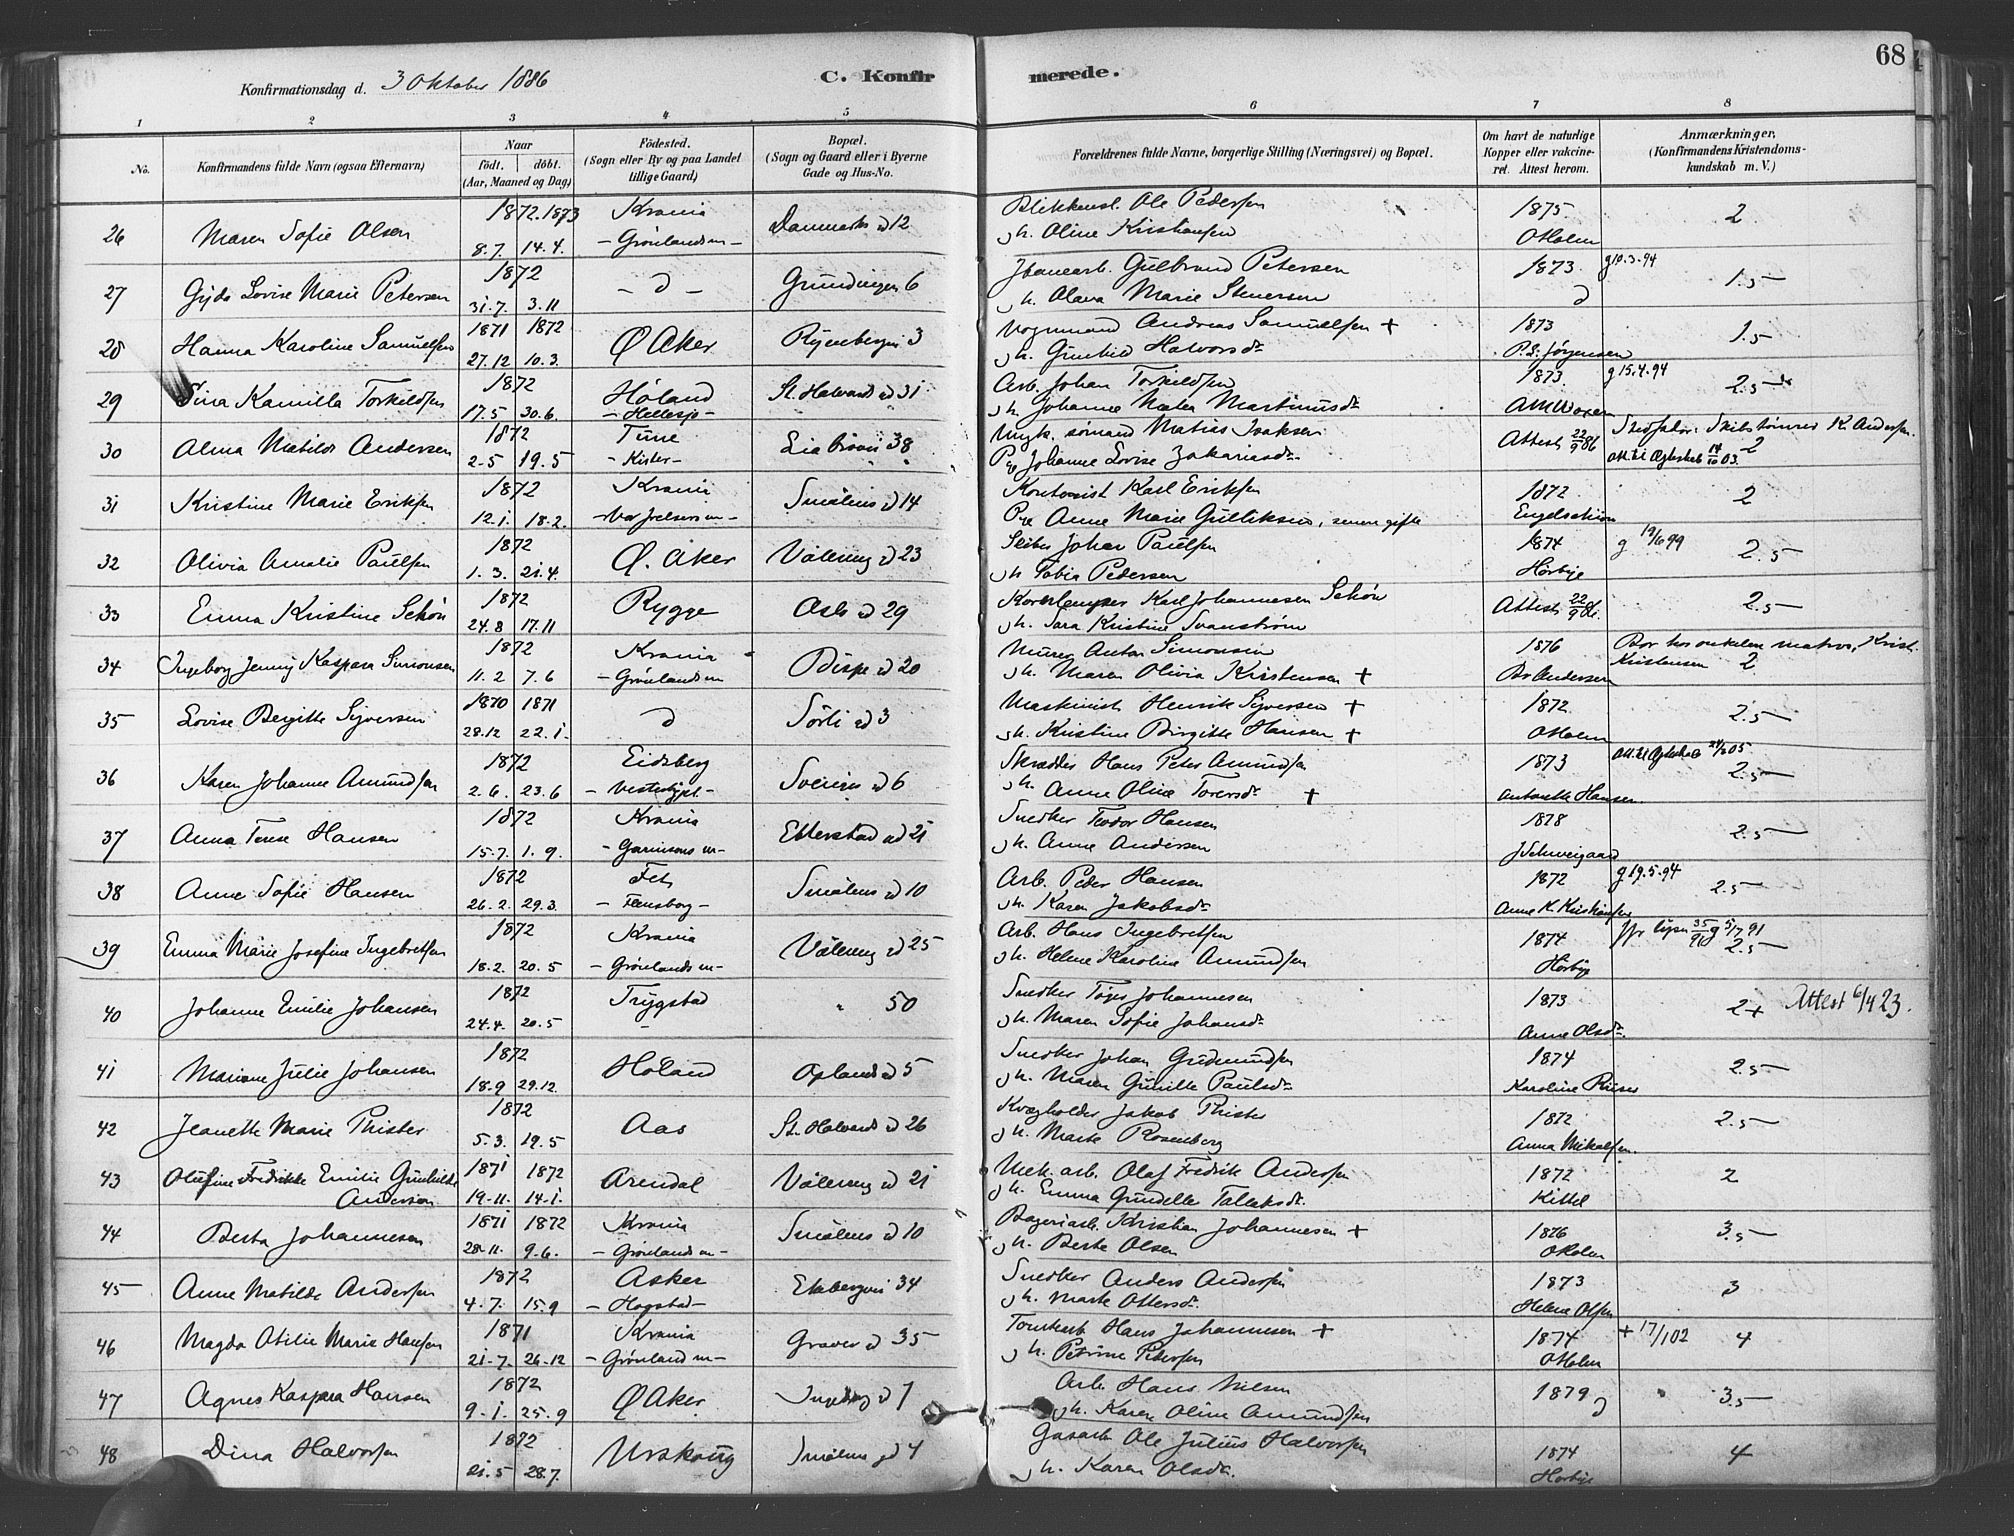 68
Konfirmationsdag d. 3 Oktober 1886
C. Konfirmerede.
1 2 3 4 5 6 7 8
No. Konfirmandens fulde Navn (ogsaa Efternavn) Naar født. døbt. (Aar, Maaned og Dag) Födested. (Sogn eller By og paa Landet tillige Gaard) Bopæl. (Sogn og Gaard eller i Byerne Gade og Hus-No. Forældrenes fulde Navne, borgerlige Stilling (Næringsvei) og Bopæl. Om havt de naturlige Kopper eller vakcineret. Attest herom. Anmærkninger, (Konfirmandens Kristendomskundskab m. V.)
26 Maren Sofie Olsen 1872. 1873 8.7. 14.4. Krania - Grönlands m - Danmarks gd 12 Blikkensl. Ole Pedersen h. Oline Kristiansen 1875 O Holm 2
27 Gyda Lovise Marie Petersen 1872 31.7. 3.11 - d - Grundingen 6 Jbanearb. Gulbrand Petersen h. Olava Marie Stenersen 1873. d g 10.3.94 1.5
28 Hanna Karoline Samuelsen 1871 1872 27.12 10.3. Ø Aker Ryenbergvei 3 Vognmand Andreas Samuelsen + h. Gunhild Halvorsd. 1873 P. S. Jørgensen 1.5
29 Sina Kamilla Torkildsen 1872 17.5 30.6. Höland - Hellesjø - St. Halvards gd 31 Arb. Johan Torkildsen h. Johanne Martinusd. 1873. g 15.4.94 2.5
30 Alma Matilde Andersen 1872 2.5 19.5 Tune Lia Brovei 38 Ungk. sömand Matias Isaksen Pige Johanne Lovise Zakariasd. Attest 22/9 86 Stedfader: Skibstömmer K. Andersen. Att. til Ægteskab 14/10 03. 2
31 Kristine Marie Eriksen 1872 12.1. 18.2. Krania - Vor Frelsers m - Smålens gd 14 Kontorist Karl Eriksen Pige Anne Marie Gulliksen, senere gifte 1872 Engelschiön 2
32 Olivia Amalie Paulsen 1872 1.3. 21.4. Ø. Aker Vålereng gd 23 Sliber Johan Paulsen h. Tobia Pedersen 1874 Hörbye g 19/6 99 2.5
33 Emma Kristine Schön 1872 24.8 17.11 Rygge Oslo gd 29 Karl Johannesen Schön h. Sara Kristine Svanström Attest 22/9 86. 2.5
34 Ingeborg Jenny Kaspara Simonsen 1872 11.2 7.6 Krania - Grönlands m Bispe gd 20 Murer Anton Simonsen h. Maren Olivia Kristensen + 1876 Br Andersen Bor hos onkelen matros Krist. Kristensen 2
35 Lovise Birgitte Syversen 1870 1871 28.12 22.1. d Sörli gd 3 Maskinist Henrik Syversen + h. Kristine Birgitte Hansen + 1872 O Holm 2.5
36 Karen Johanne Amundsen 1872 2.6. 23.6 Eidsberg Sveriges gd 6 Skrædder Hans Peter Amundsen h. Anne Oline Toresd. + 1873 Antonette Hansen. Att. til Ægteskab 24/2 05 2.5
37 Anna Terese Hansen 1872 15.7. 1.9. Krania - Garnisons m - Etterstad gd 21 Snedker Teodor Hansen h. Anne Andersen 1878 J Schweigaard 2.5
38 Anne Sofie Hansen 1872 26.2. 29.3. Fet - Fensborg - Smålens gd 10 Arb. Peder Hansen h. Karen Jakobsd. 1872 Anne K. Kristiansen g 19.5.94 2.5
39 Emma Marie Josefine Ingebretsen 1872 18.2. 20.5 Krania - Grönlands m - Vålereng gd 25 Arb. Hans Ingebretsen h. Helene Karoline Amundsen 1874 Hörbye 35/91 g 5/7 91 2.5
40 Johanne Emilie Johansen 1872 24.4. 20.5 Trygstad - " 50 Snedker Johannesen h. Maren Sofie Johansd. 1873 Anne Olsd. 2+ Attest 6/4 23.
41 Mariane Julie Johansen 1872 18.9 29.12. Höland Oplands gd 5 Snedker Johan Gudmundsen h. Maren Gunille Paulsd. 1874 Karoline 2.5
42 Jeanette Marie Thister 1872 5.3. 19.5 Aas St. Halvards gd 26 Kvægholder Jakob Thister h. Marte Rosenberg 1872 Anna Mikalsen. 2.5
43 Olufine Fredrikke Emilie Gunhilde Andersen 1871 1872 19.11. 14.1. Arendal Vålereng gd 21 Mek. arb. Olaf Fredrik Andersen h. Emma Gundelle Tallaksd. 1872 Kittel 2
44 Berta Johannesen 1871 1872 28.11. 9.6. Krania - Grönlands m - Smålens gd 10 Bageriarb. Kristian Johannesen + h. Berte Olsen 1876 O Holm 3.5
45 Anne Matilde Andersen 1872 4.7. 15.9 Asker - Hogstad - Ekebergvei 34 Snedker Anders Andersen h. Marte Ottersd. 1873 Helene Olsen 3
46 Magda Otilie Marie Hansen 1871 21.7. 26.12 Krania - Grönland m - Graver gd 35 Tomtearb Hans Johannesen + h. Petrine Pedersen 1874 O Holm + 17/1 02 4
47 Agnes Kaspara Hansen 1872 9.1. 25.9 Ø Aker Ingeborg gd 7 Arb. Hans Nilsen h. Karen Oline Amundsen 1879 d 3.5
48 Dina Halvorsen 1872 21.5 28.7. Urskoug Smålens gd 4 Gasarb Ole Julius Halvorsen h. Karen Olsd. 1874 Hörbye 4